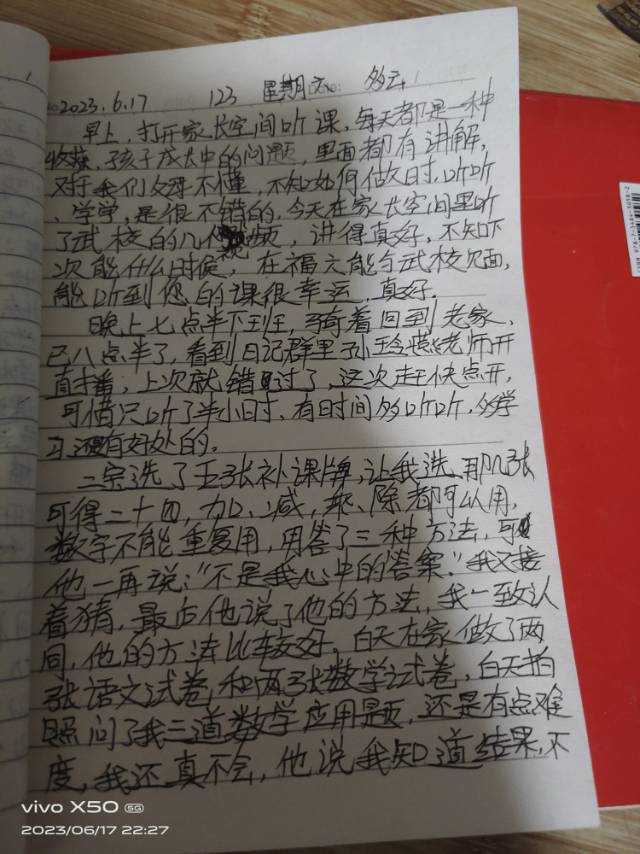 2023.6.17 123 星期六 多云
早上，打开家长空间听课，每天都是一种
收获，孩子成长中的问题，里面都有讲解，
对于我们父母不懂，不知如何做时，听听
、学学，是很不错的，今天在家长空间里听
了武校的几个视频，讲得真好，不知下
次能什么时候，在福六能与武校见面，
能听到您的课很幸运，真好。
晚上七点半下班，骑着回到老家，
已八点半了，看到日记群里孙玲燕老师开
直播，上次就错过了，这次赶快点开，
可惜只听了半小时，有时间多听听，多学
习还有好处的。
二宗选了五张补课牌，让我选，那几张
可得二十四，加、减，乘、除都可以用，
数字不能重复用，用答了三种方法，可
他一再说："不是我心中的答案。"我又接
着猜，最后他说了他的方法，我一致认
同，他的方法比较好。白天在家做了两
张语文试卷，和两张数学试卷，白天拍
照问了我二道数学应用题，还是有点难
度，我还真不会，他说我知道结果，不
vivo X50 5G
2023/06/17 22:27